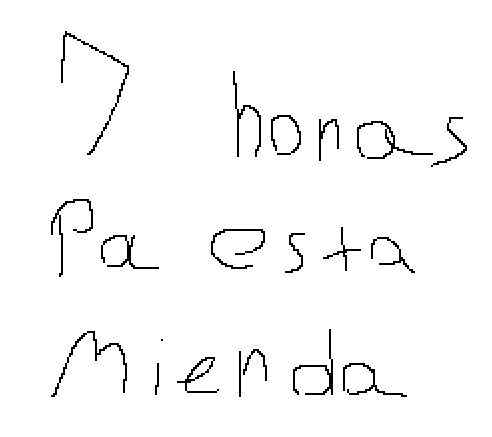 7 horas
Pa esta
Mierda